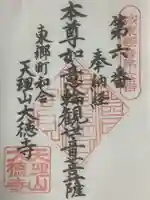 第六番
奉納経
本尊如意輪観世音菩薩
東郷町和合
天理山大徳寺
天理山
大徳寺